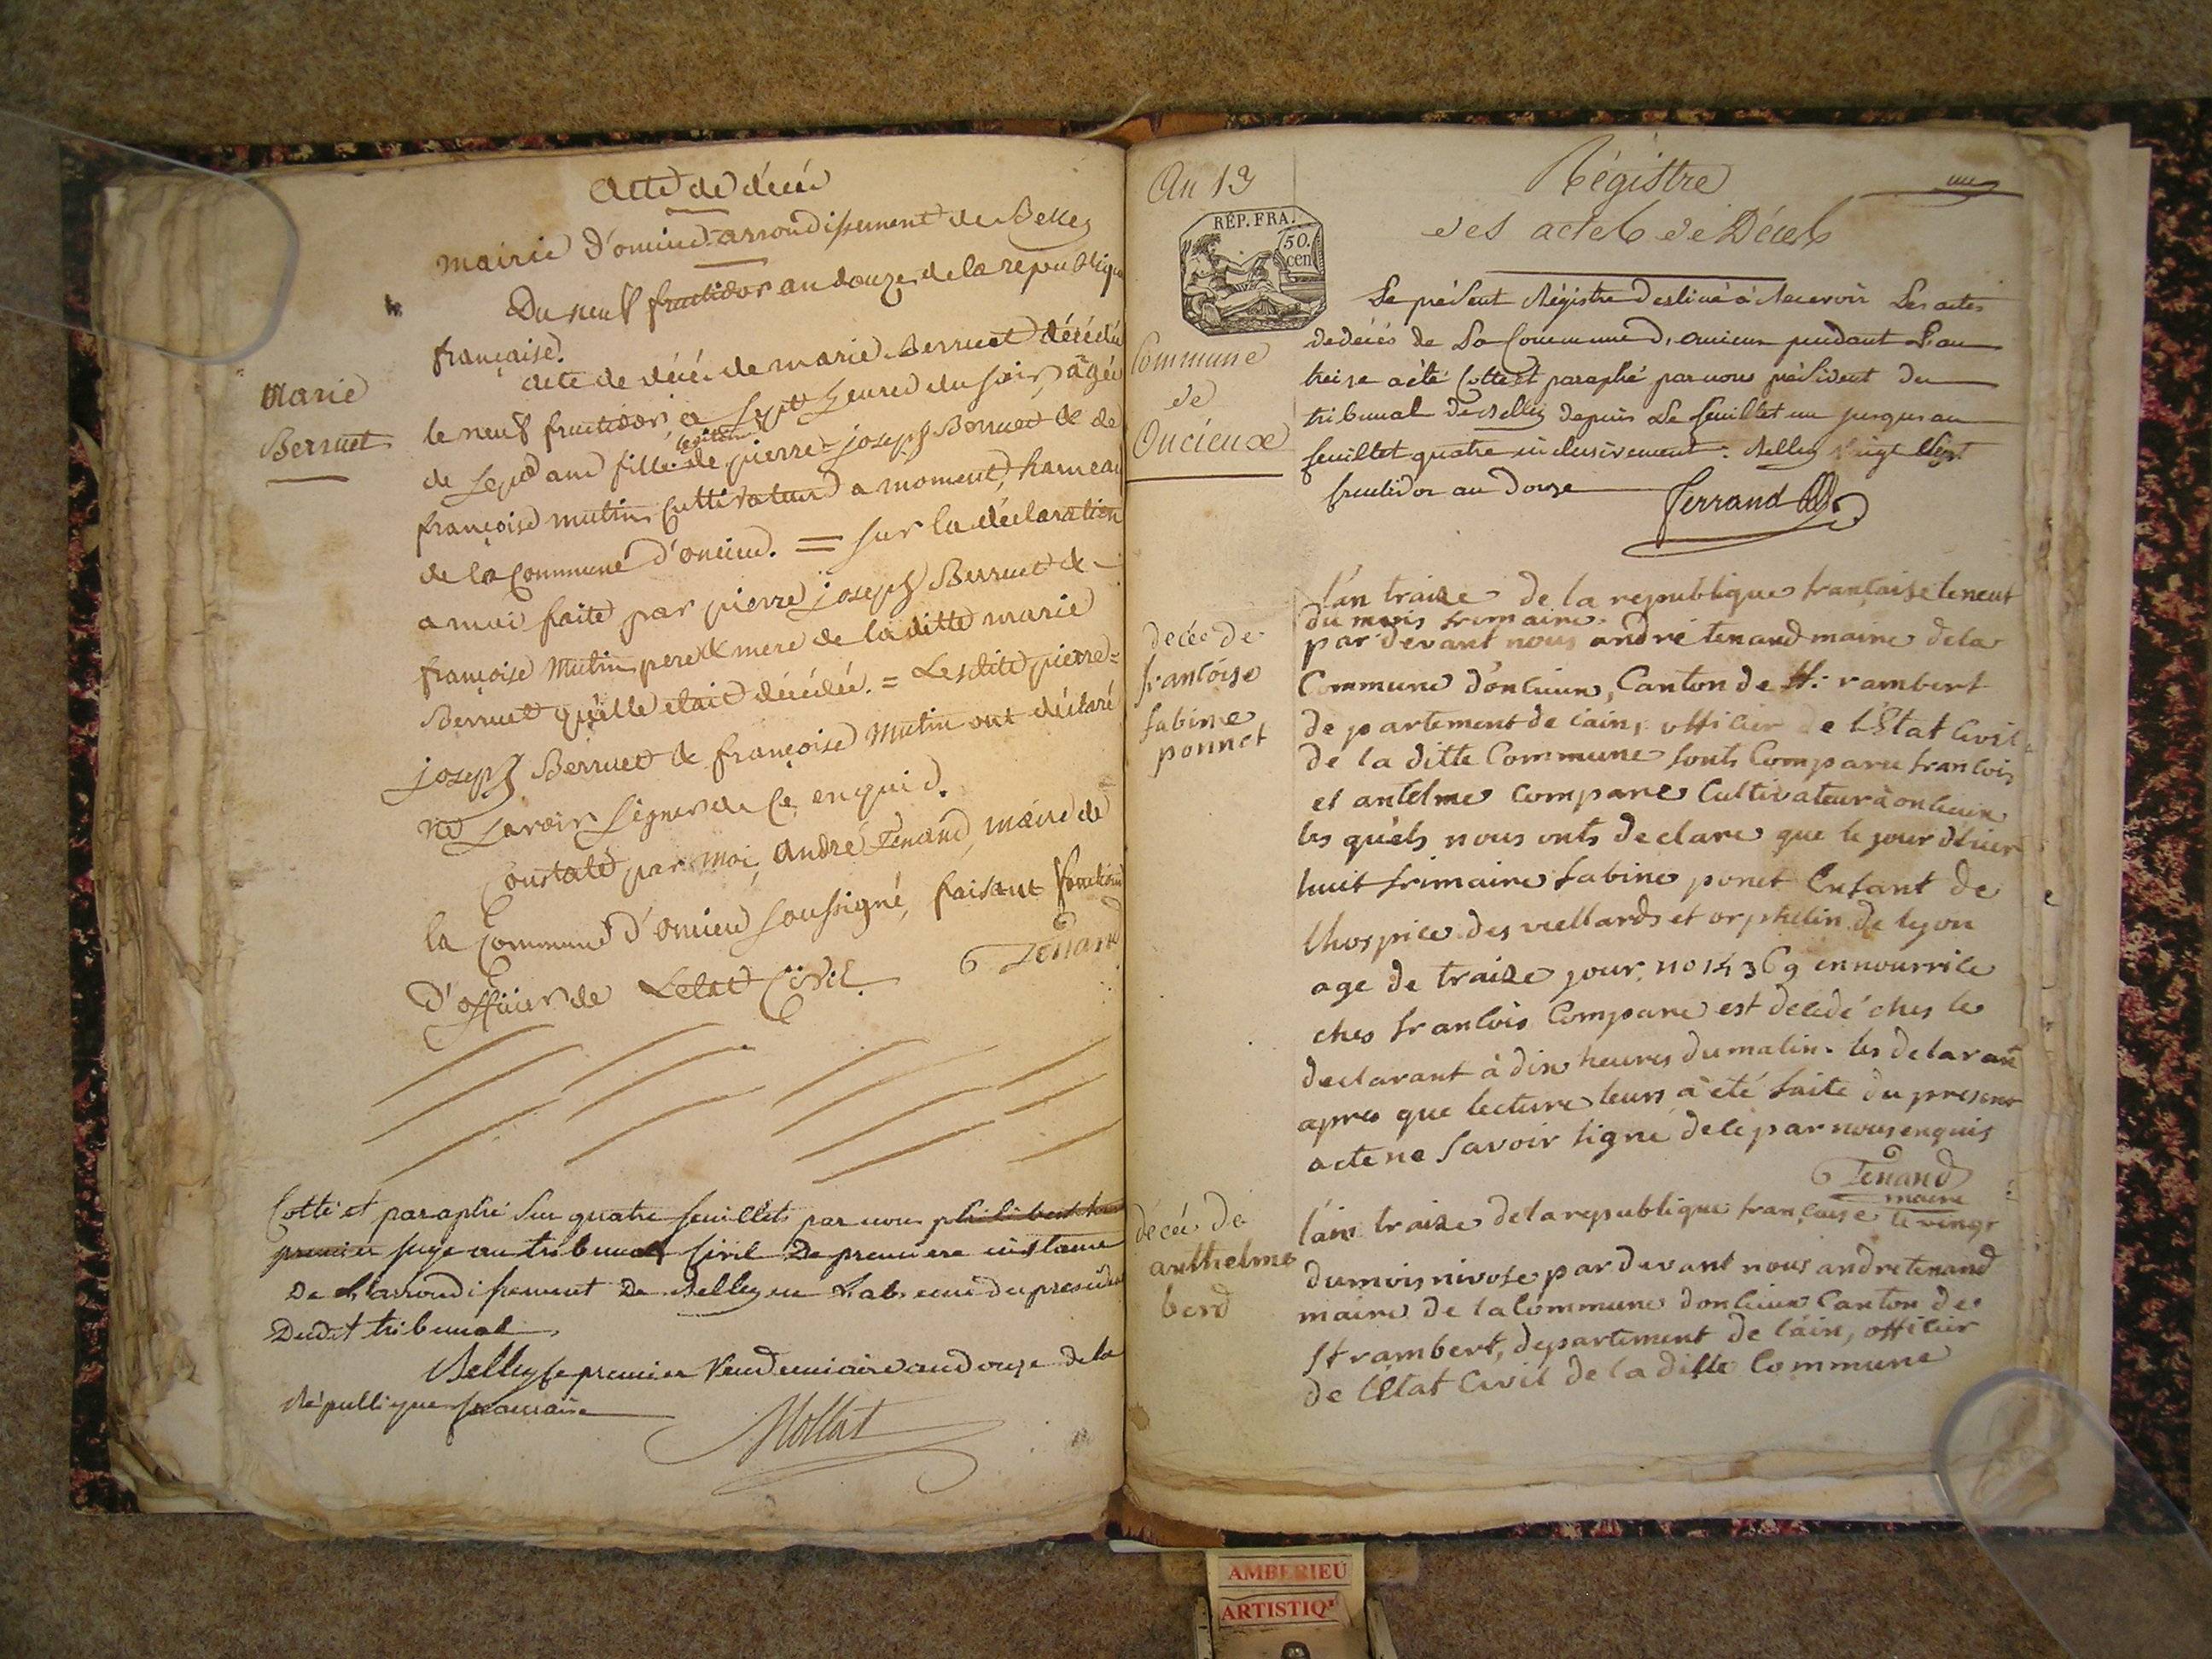 Acte de décée
mairie d'oncieu arrondissement de Belley
Du neuf fructidor an douze de la republique
française.
Marie
Berruet
acte de décé de marie Berruet décédée
le neuf fructidor a sept heures du soir, agée
de sept ans fille legitime de pierre=joseph Berruet & de
françoise mutin cultivateurs a moment, hameau
de la commune d'oncieu. = sur la déclaration
a moi faite par pierre joseph Berruet &
françoise Mutin pere & mere de la ditte marie
Berruet qu'elle etait décédée. = Lesdits pierre=
joseph Berruet & françoise Mutin ont déclaré
ne savoir signer de ce enquis.
Constaté par moi, andré Tenand, maire de
la commune d'oncieu soussigné, faisant fonction
D'officier de Letat Civil.
Tenand
Cotté et paraphé sur quatre feuillets par nous philibert
premier juge au tribunal Civil De premiere instance
De L'arrondissement De Belley en L'absence du président
Dudit tribunal
Belley le premier Vendemiaire an douze de la
République francaise
Mollat
An 13
RÉP. FRA.
50.
cen
Commune
de
Oncieux
Régistre
des actes de Décès
Le présent Régistre destiné à Recevoir Les actes
de décès de La Commune d'oncieux pendant L'an
treize a été Cotté et paraphé par nous président du
tribunal de Belley depuis Le feuillet un jusques au
feuillet quatre inclusivement. Belley vingt Sept
fructidor an Douze
Ferrand
decée de
francoise
sabine
ponnet
l'an traize de la republique francaise le neuf
du mois frimaire.
par devant nous andré tenand maire de la
Commune d'oncieux, Canton de St. rambert
departement de l'ain, officier de l'Etat Civil
de la ditte Commune sonts Comparu francois
et antelme Compare Cultivateur à oncieux
les quels nous onts declare que le jour d'hier
huit frimaire sabine ponet Enfant de
lhospice des viellards et orphelin de lyon
age de traize jour no 14369 en nourrice
ches francois Compare est decedé ches le
declarant à dix heures du matin. les delarant
apres que lecture leurs à été faite du present
acte ne savoir signé de ce par nous enquis
Tenand
maire
décée de
anthelme
berd
l'ain traize de la republique française le vingt
du mois nivose par devant nous andre tenand
maire de la Commune d'oncieux Canton de
St rambert, departement de l'ain, officier
de l'Etat Civil de la ditte Commune
AMBERIEU
ARTISTIQ